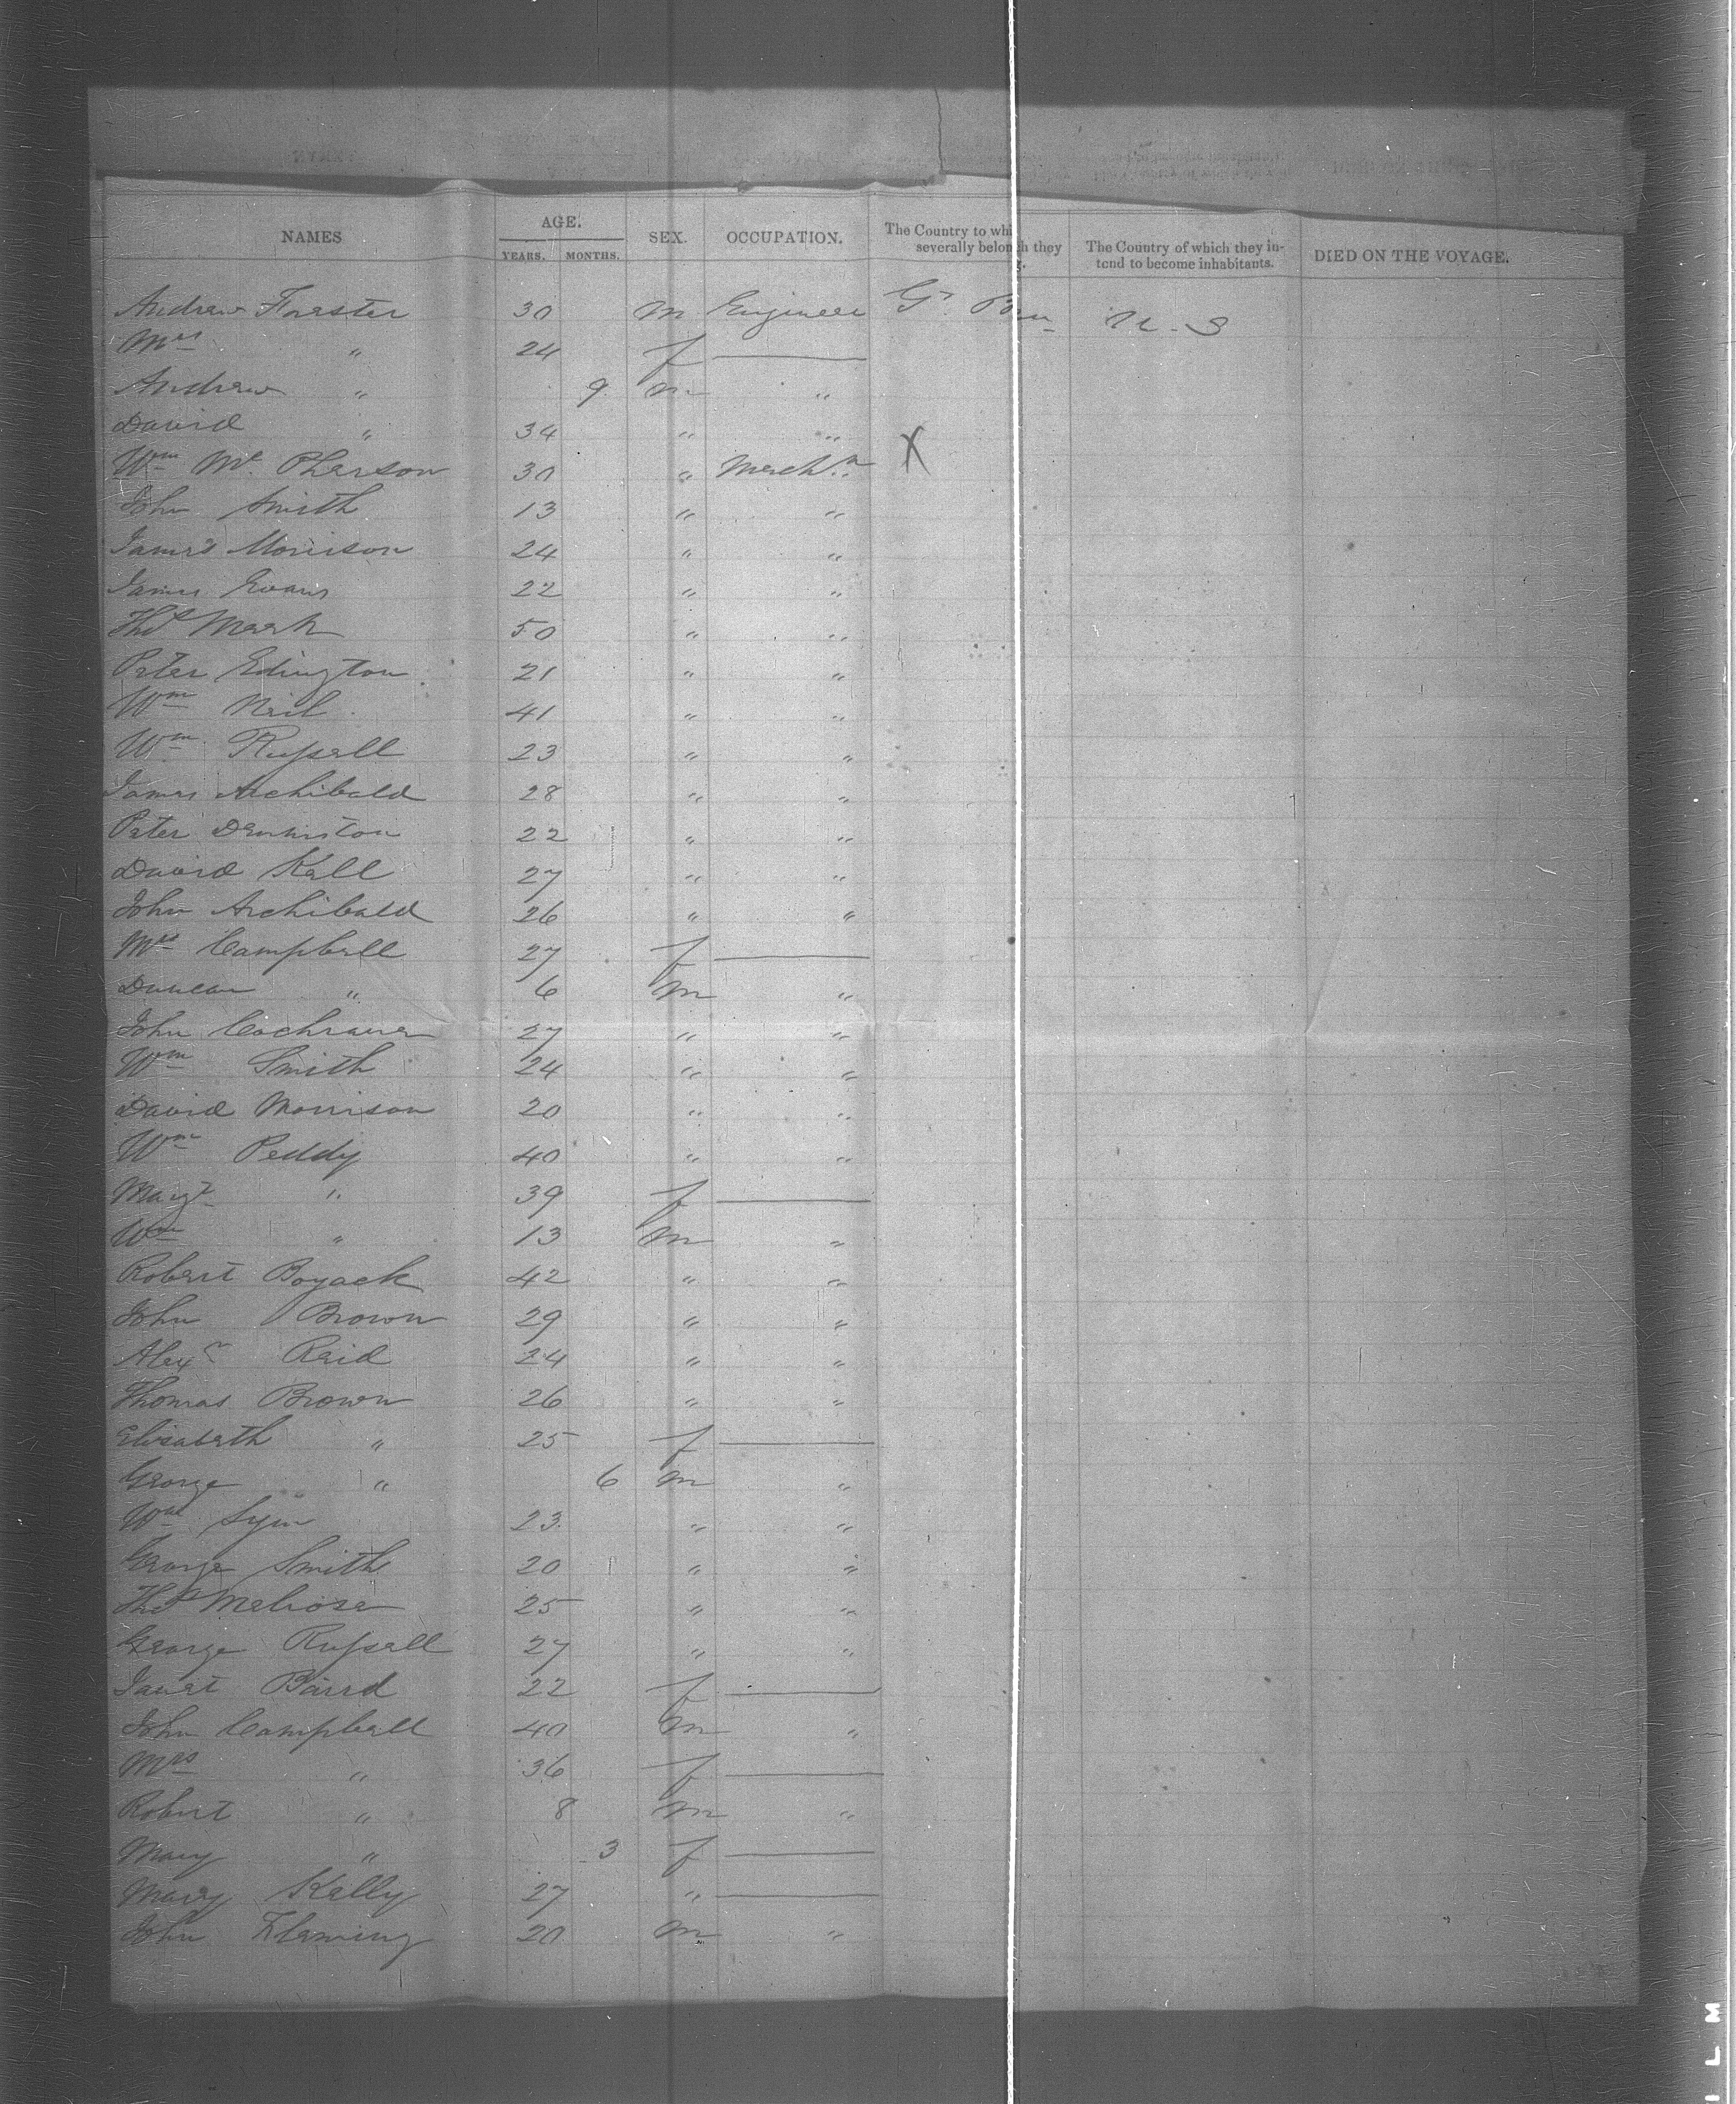 NAMES AGE. YEARS. MONTHS. SEX. OCCUPATION. The Country to whi severally belon h they The Country of which they in- tend to become inhabitants. DIED ON THE VOYAGE.
Andrew Forester 30 m Engineer Gt. U.S
Mrs " 24 f
Andrew " 9 m "
David " 34 " "
Wm Mc Pherson 30 " Mech.n X
John Smith 13 " "
James Morrison 24 " "
James Evans 22 " "
Thos Mark 50 " "
Peter Edington 21 " "
Wm Neil 41 " "
Wm Russell 23 " "
James Archibald 28 " "
Peter Denniston 22 " "
David Kell 27 " "
John Archibald 26 " "
Mrs Campbell 27 f
Duncan " 6 m "
John Cochrane 27 " "
Wm Smith 24 " "
David Morrison 20 " "
Wm Peddy 40 " "
Margt " 39 f
Wm " 13 m "
Robert Boyack 42 " "
John Brown 29 " "
Alexr Reid 24 " "
Thomas Brown 26 " "
Elisabeth " 25 f
George " 6 m "
Wm Sym 23 " "
George Smith 20 " "
Thos Melrose 25 " "
George Russell 27 " "
Janet Baird 22 f
John Campbell 40 m "
Mrs " 36 f
Robert " 8 m "
Mary " 3 f
Mary Kelly 27 "
John Fleming 20 m "
ILM